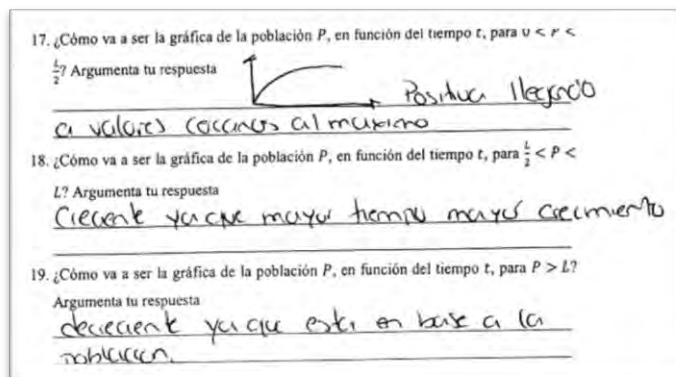 17. ¿Cómo va a ser la gráfica de la población P, en función del tiempo t, para 0 < P <
L/2? Argumenta tu respuesta
Positiva llegando
a valores cercanos al maximo
18. ¿Cómo va a ser la gráfica de la población P, en función del tiempo t, para L/2 < P <
L? Argumenta tu respuesta
Creciente ya que mayor tiempo mayor crecimiento
19. ¿Cómo va a ser la gráfica de la población P, en función del tiempo t, para P > L?
Argumenta tu respuesta
decreciente ya que esta en base a la
poblacion.